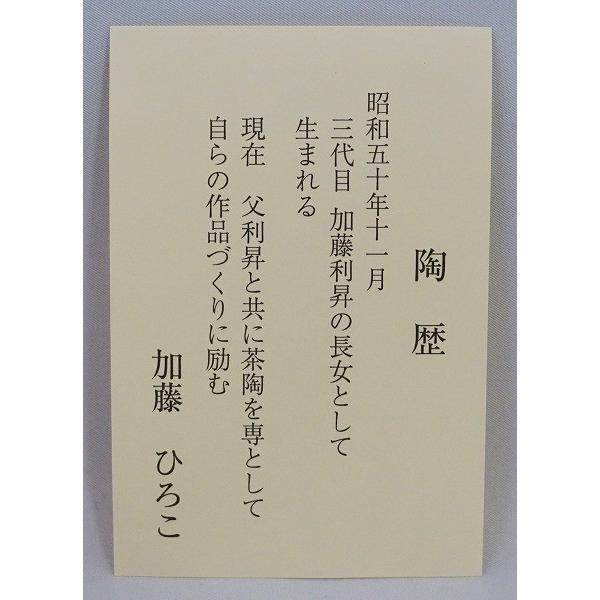 陶 歴
昭和五十年十一月
三代目 加藤利昇の長女として
生まれる
現在 父利昇と共に茶陶を専として
自らの作品づくりに励む
加藤 ひろこ